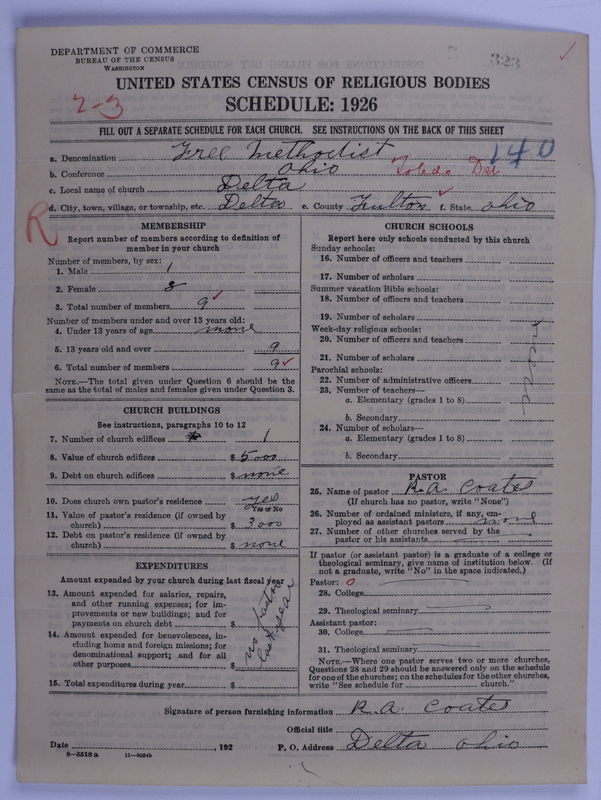 DEPARTMENT OF COMMERCE
BUREAU OF THE CENSUS
WASHINGTON
323
UNITED STATES CENSUS OF RELIGIOUS BODIES
2-3
SCHEDULE: 1926
FILL OUT A SEPARATE SCHEDULE FOR EACH CHURCH. SEE INSTRUCTIONS ON THE BACK OF THIS SHEET
140
a. Denomination Free Methodist
b. Conference Ohio Toledo Dis
c. Local name of church Delta
d. City, town, village, or township, etc. Delta e. County Fulton f. State Ohio
R
MEMBERSHIP
Report number of members according to definition of
member in your church
Number of members, by sex:
1. Male 1
2. Female 8
3. Total number of members 9
Number of members under and over 13 years old:
4. Under 13 years of age none
5. 13 years old and over 9
6. Total number of members 9
NOTE.—The total given under Question 6 should be the
same as the total of males and females given under Question 3.
CHURCH BUILDINGS
See instructions, paragraphs 10 to 12
7. Number of church edifices 1
8. Value of church edifices $ 5,000
9. Debt on church edifices $ none
10. Does church own pastor's residence yes
Yes or No
11. Value of pastor's residence (if owned by
church) $ 3,000
12. Debt on pastor's residence (if owned by
church) $ none
EXPENDITURES
Amount expended by your church during last fiscal year
13. Amount expended for salaries, repairs,
and other running expenses; for im-
provements or new buildings; and for
payments on church debt $
14. Amount expended for benevolences, in-
cluding home and foreign missions; for
denominational support; and for all
other purposes $
no pastor
last year
15. Total expenditures during year $
CHURCH SCHOOLS
Report here only schools conducted by this church
Sunday schools:
16. Number of officers and teachers
17. Number of scholars
Summer vacation Bible schools:
18. Number of officers and teachers
19. Number of scholars
Week-day religious schools:
20. Number of officers and teachers
21. Number of scholars
Parochial schools:
22. Number of administrative officers
23. Number of teachers—
a. Elementary (grades 1 to 8)
b. Secondary
24. Number of scholars—
a. Elementary (grades 1 to 8)
b. Secondary
none
PASTOR
25. Name of pastor R.A. Coates
(If church has no pastor, write "None")
26. Number of ordained ministers, if any, em-
ployed as assistant pastors none
27. Number of other churches served by the
pastor or his assistants
If pastor (or assistant pastor) is a graduate of a college or
theological seminary, give name of institution below. (If
not a graduate, write "No" in the space indicated.)
Pastor: 0
28. College
29. Theological seminary
Assistant pastor:
30. College
31. Theological seminary
NOTE.—Where one pastor serves two or more churches,
Questions 28 and 29 should be answered only on the schedule
for one of the churches; on the schedules for the other churches,
write "See schedule for church."
Signature of person furnishing information R.A. Coates
Official title
Date , 192 P. O. Address Delta Ohio
8—5518 a 11—9034b